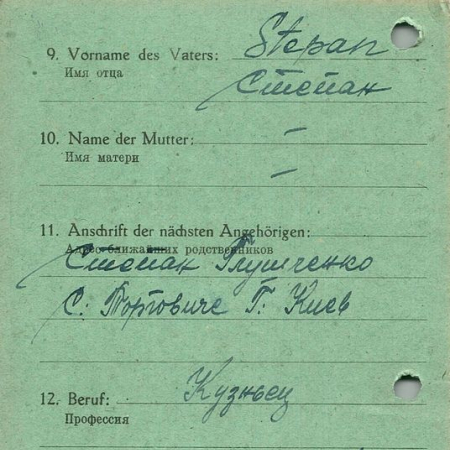 9. Vorname des Vaters: Stepan
Имя отца
Степан
10. Name der Mutter: –
Имя матери
–
11. Anschrift der nächsten Angehörigen:
Адрес ближайших родственников
Степан Глушченко
С. Торговиче Г. Киев
12. Beruf: Кузньец
Профессия